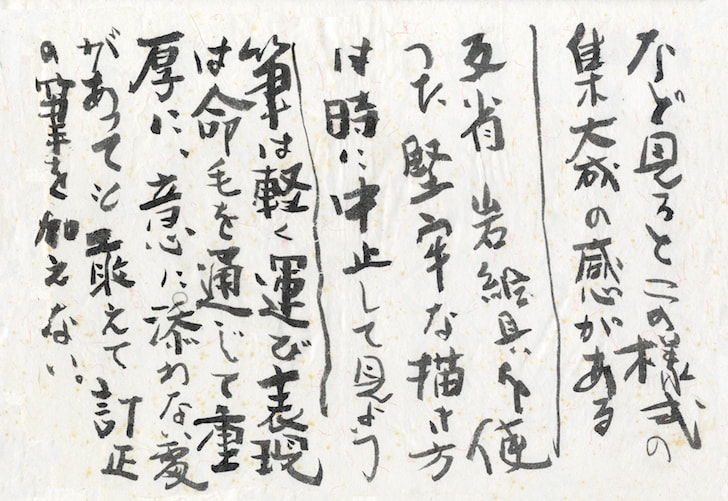 など見るとこの様式の
集大成の感がある
反省 岩絵具が使
った 堅牢な描き方
は時に中止して見よう
筆は軽く運び表現
は命毛を通じて重
厚に、意に添わない処
があっても敢えて訂正
の筆を加えない。